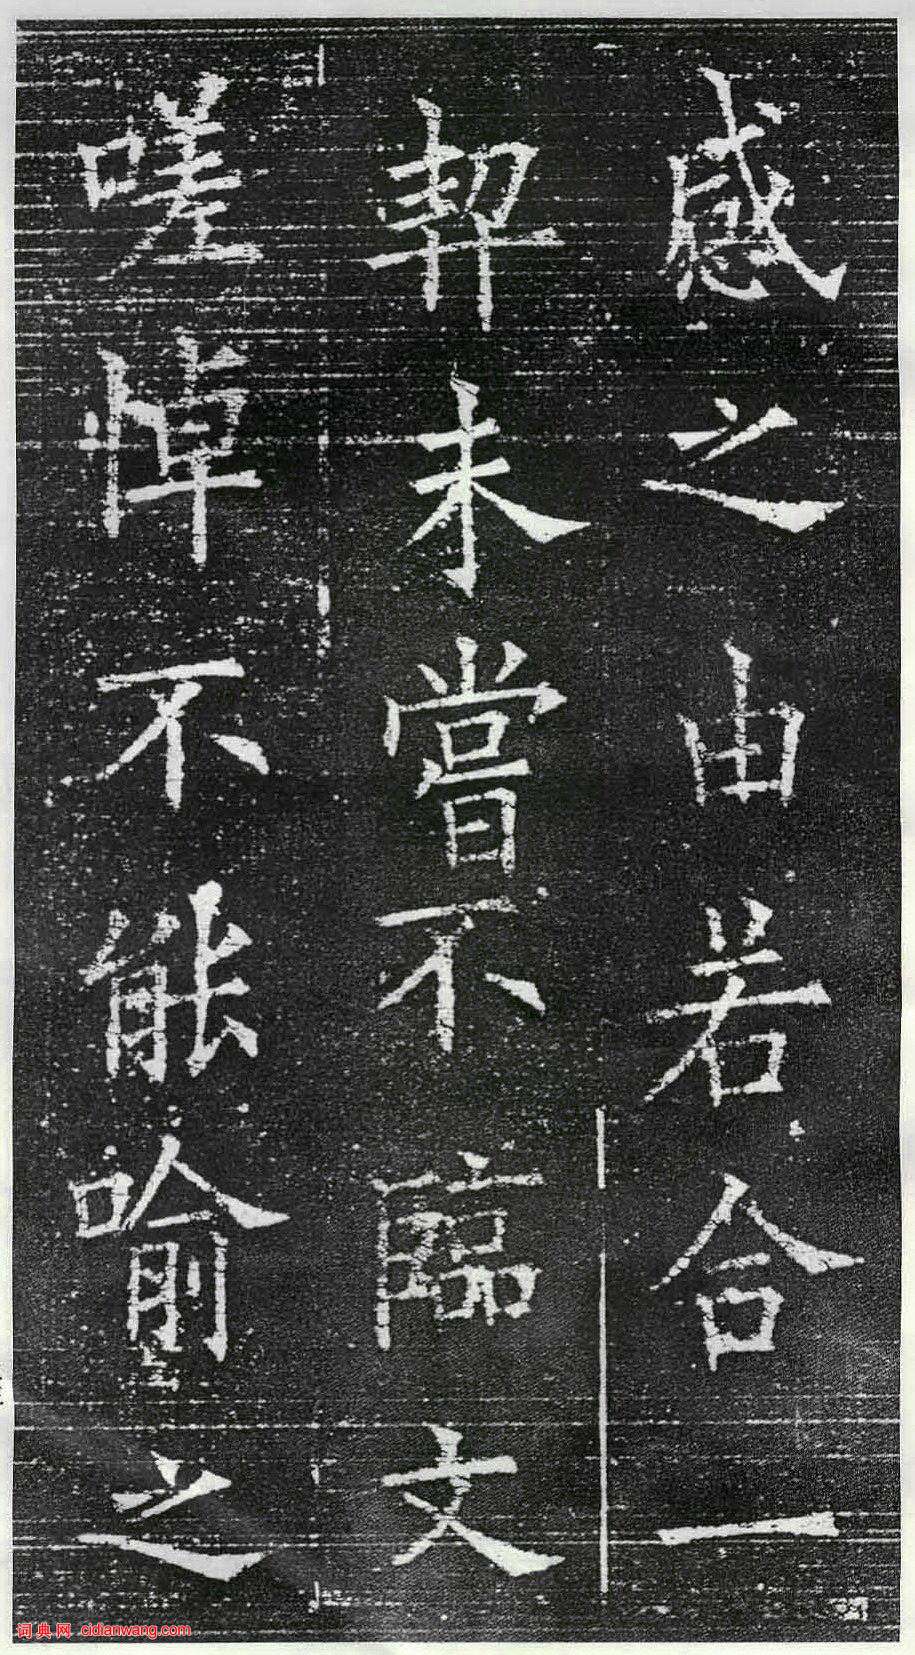 感之由若合一
契未嘗不臨文
嗟悼不能喻之
词典网 cidianwang.com